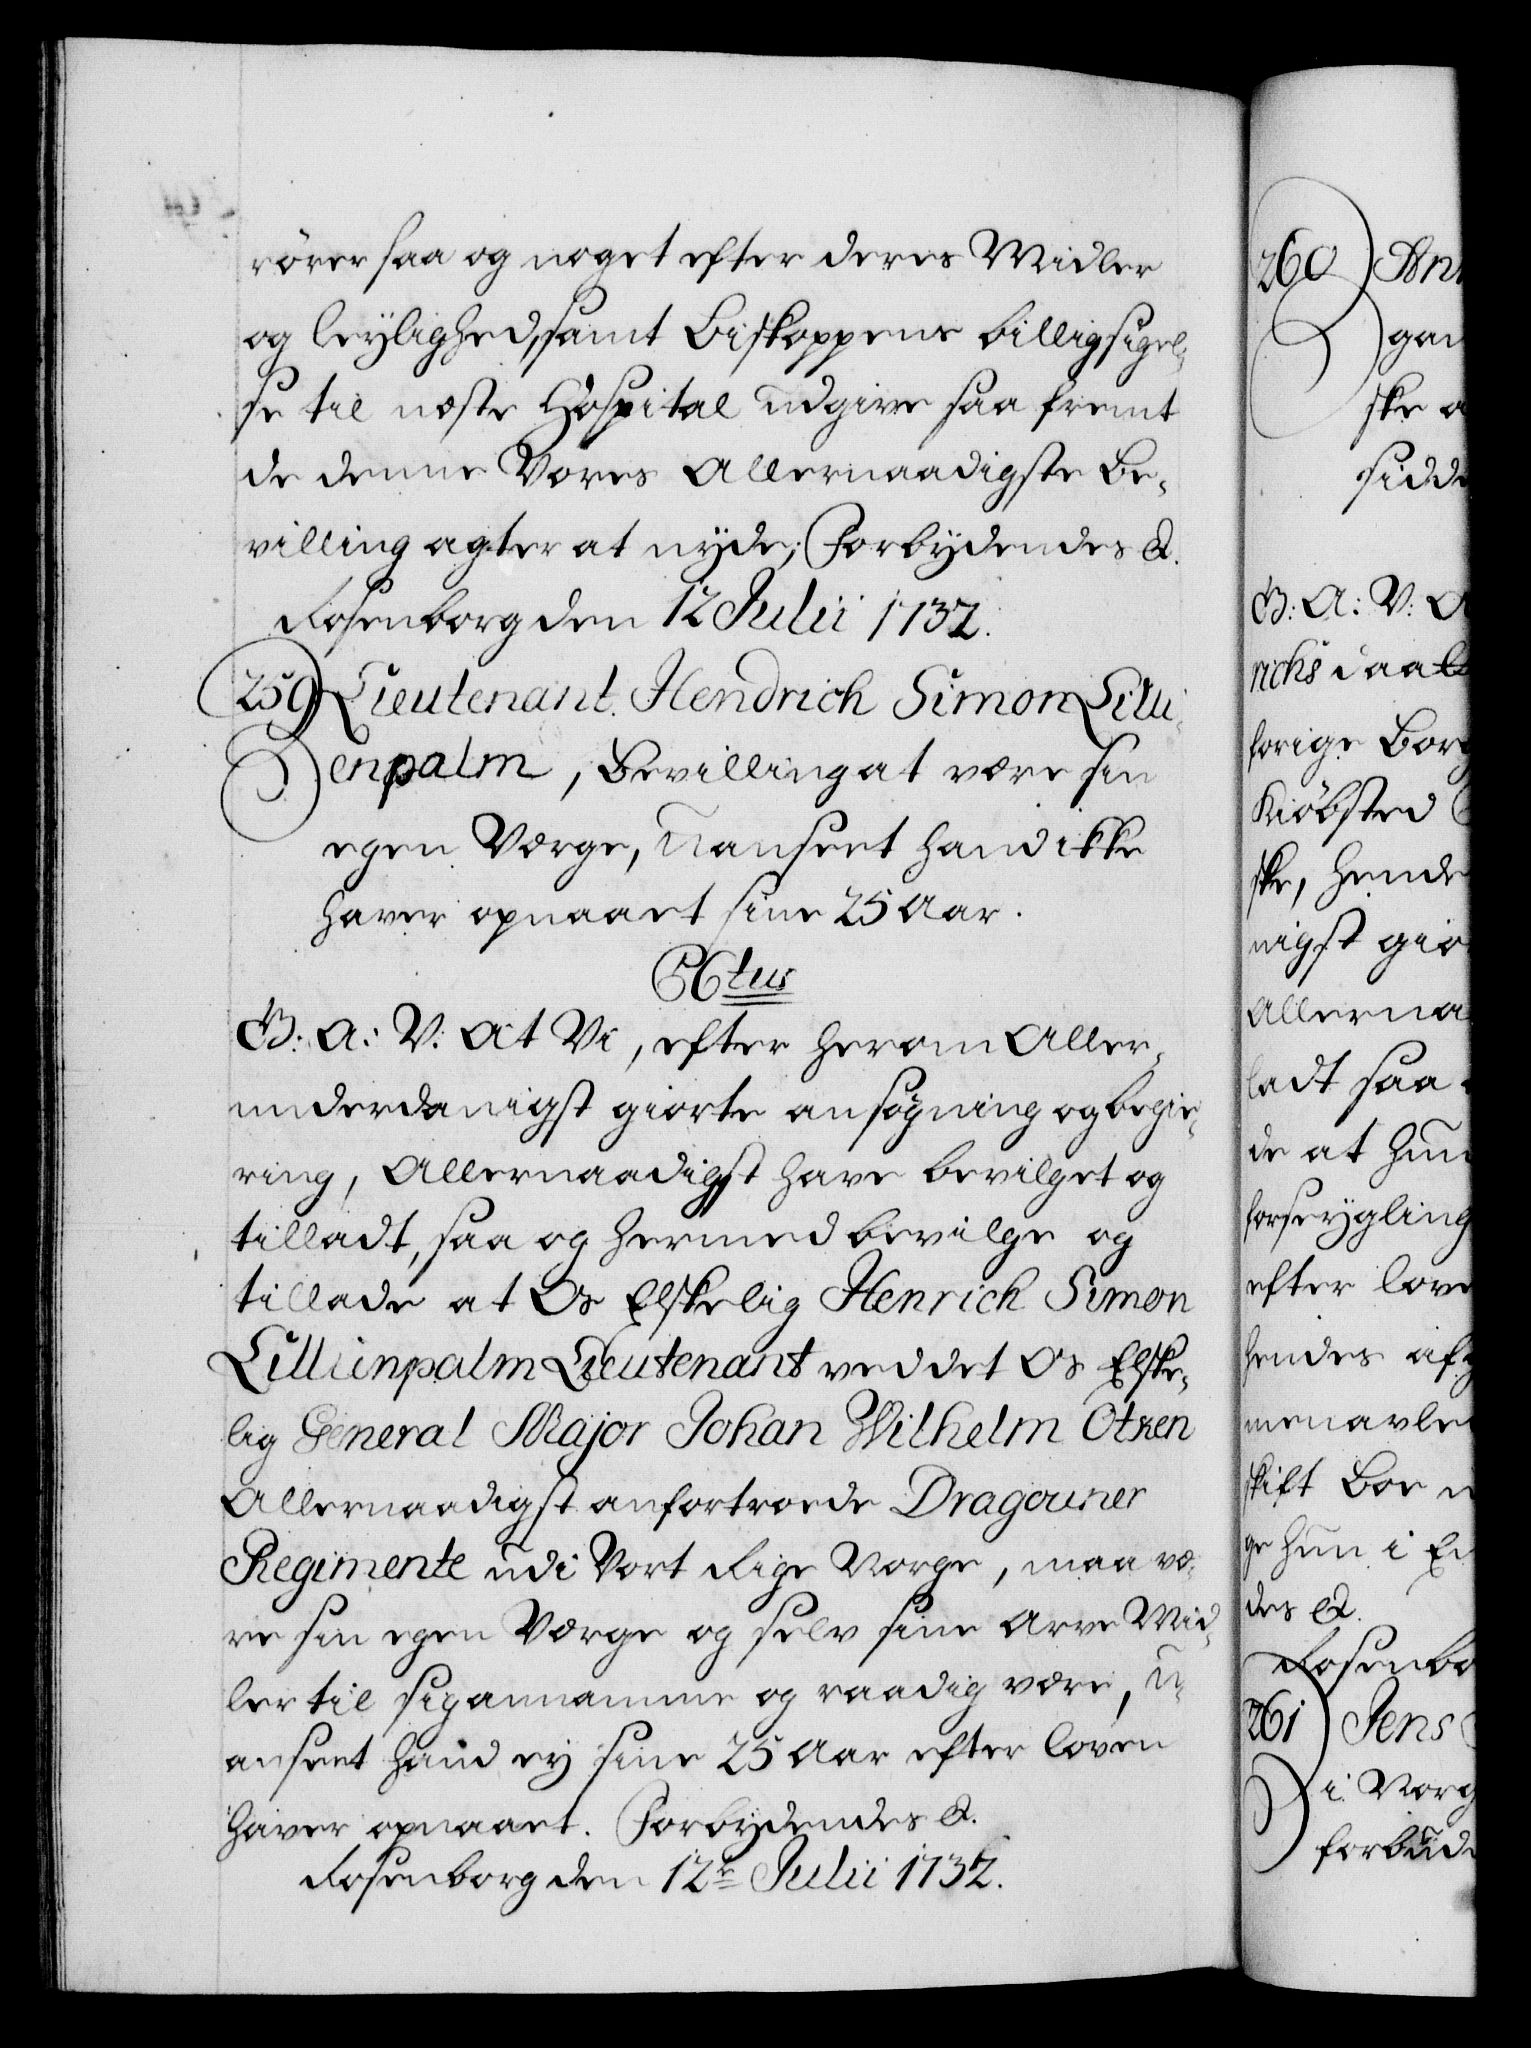 rörer saa og noget efter deres Midler
og leylighed, samt Biskoppens billigsigel-
se til næste Hospital udgive saa fremt
de denne Vores Allernaadigste Be-
villing agter at nyde; Forbydendes &.
Rosenborg den 12 Julii 1732.
259 Lieutenant Hendrich Simon Lilli-
enpalm, Bevilling at være sin
egen Værge, uanseet hand ikke
haver opnaaet sine 25 Aar.
G: A: V: At Vi, efter herom Aller-
underdanigst giorte ansøgning og begie-
ring, Allernaadigst have bevilget og
tilladt, saa og hermed bevilge og
tillade at Os Elskelig Henrich Simon
Lillienpalm Lieutenant ved det Os Elske-
lig General Major Johan Wilhelm Otken
Allernaadigst anfortroede Dragouner
Regimente udi Vort Rige Norge, maa væ-
re sin egen Værge og selv sine Arve Mid-
ler til sig annamme og raadig være, u-
anseet hand ey sine 25 Aar efter loven
haver opnaaet. Forbydendes &.
Rosenborg den 12te Julii 1732.
260
ske
G: A: V:
richs daat
forige
Kiöbsted
ske, hende
nigst
Allerna
ladt saa
de at hun
forseygling
efter
hendes
skift Boe
ge hun i
des &.
261 Jens
i Norg